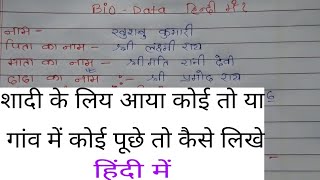 Bio - Data हिन्दी में ?
नाम - खुशबु कुमारी
पिता का नाम - श्री लक्ष्मी राय
माता का नाम - श्रीमति रानी देवी
दादा का नाम :- श्री प्रमोद राय
शादी के लिय आया कोई तो या
गांव में कोई पूछे तो कैसे लिखे
हिंदी में